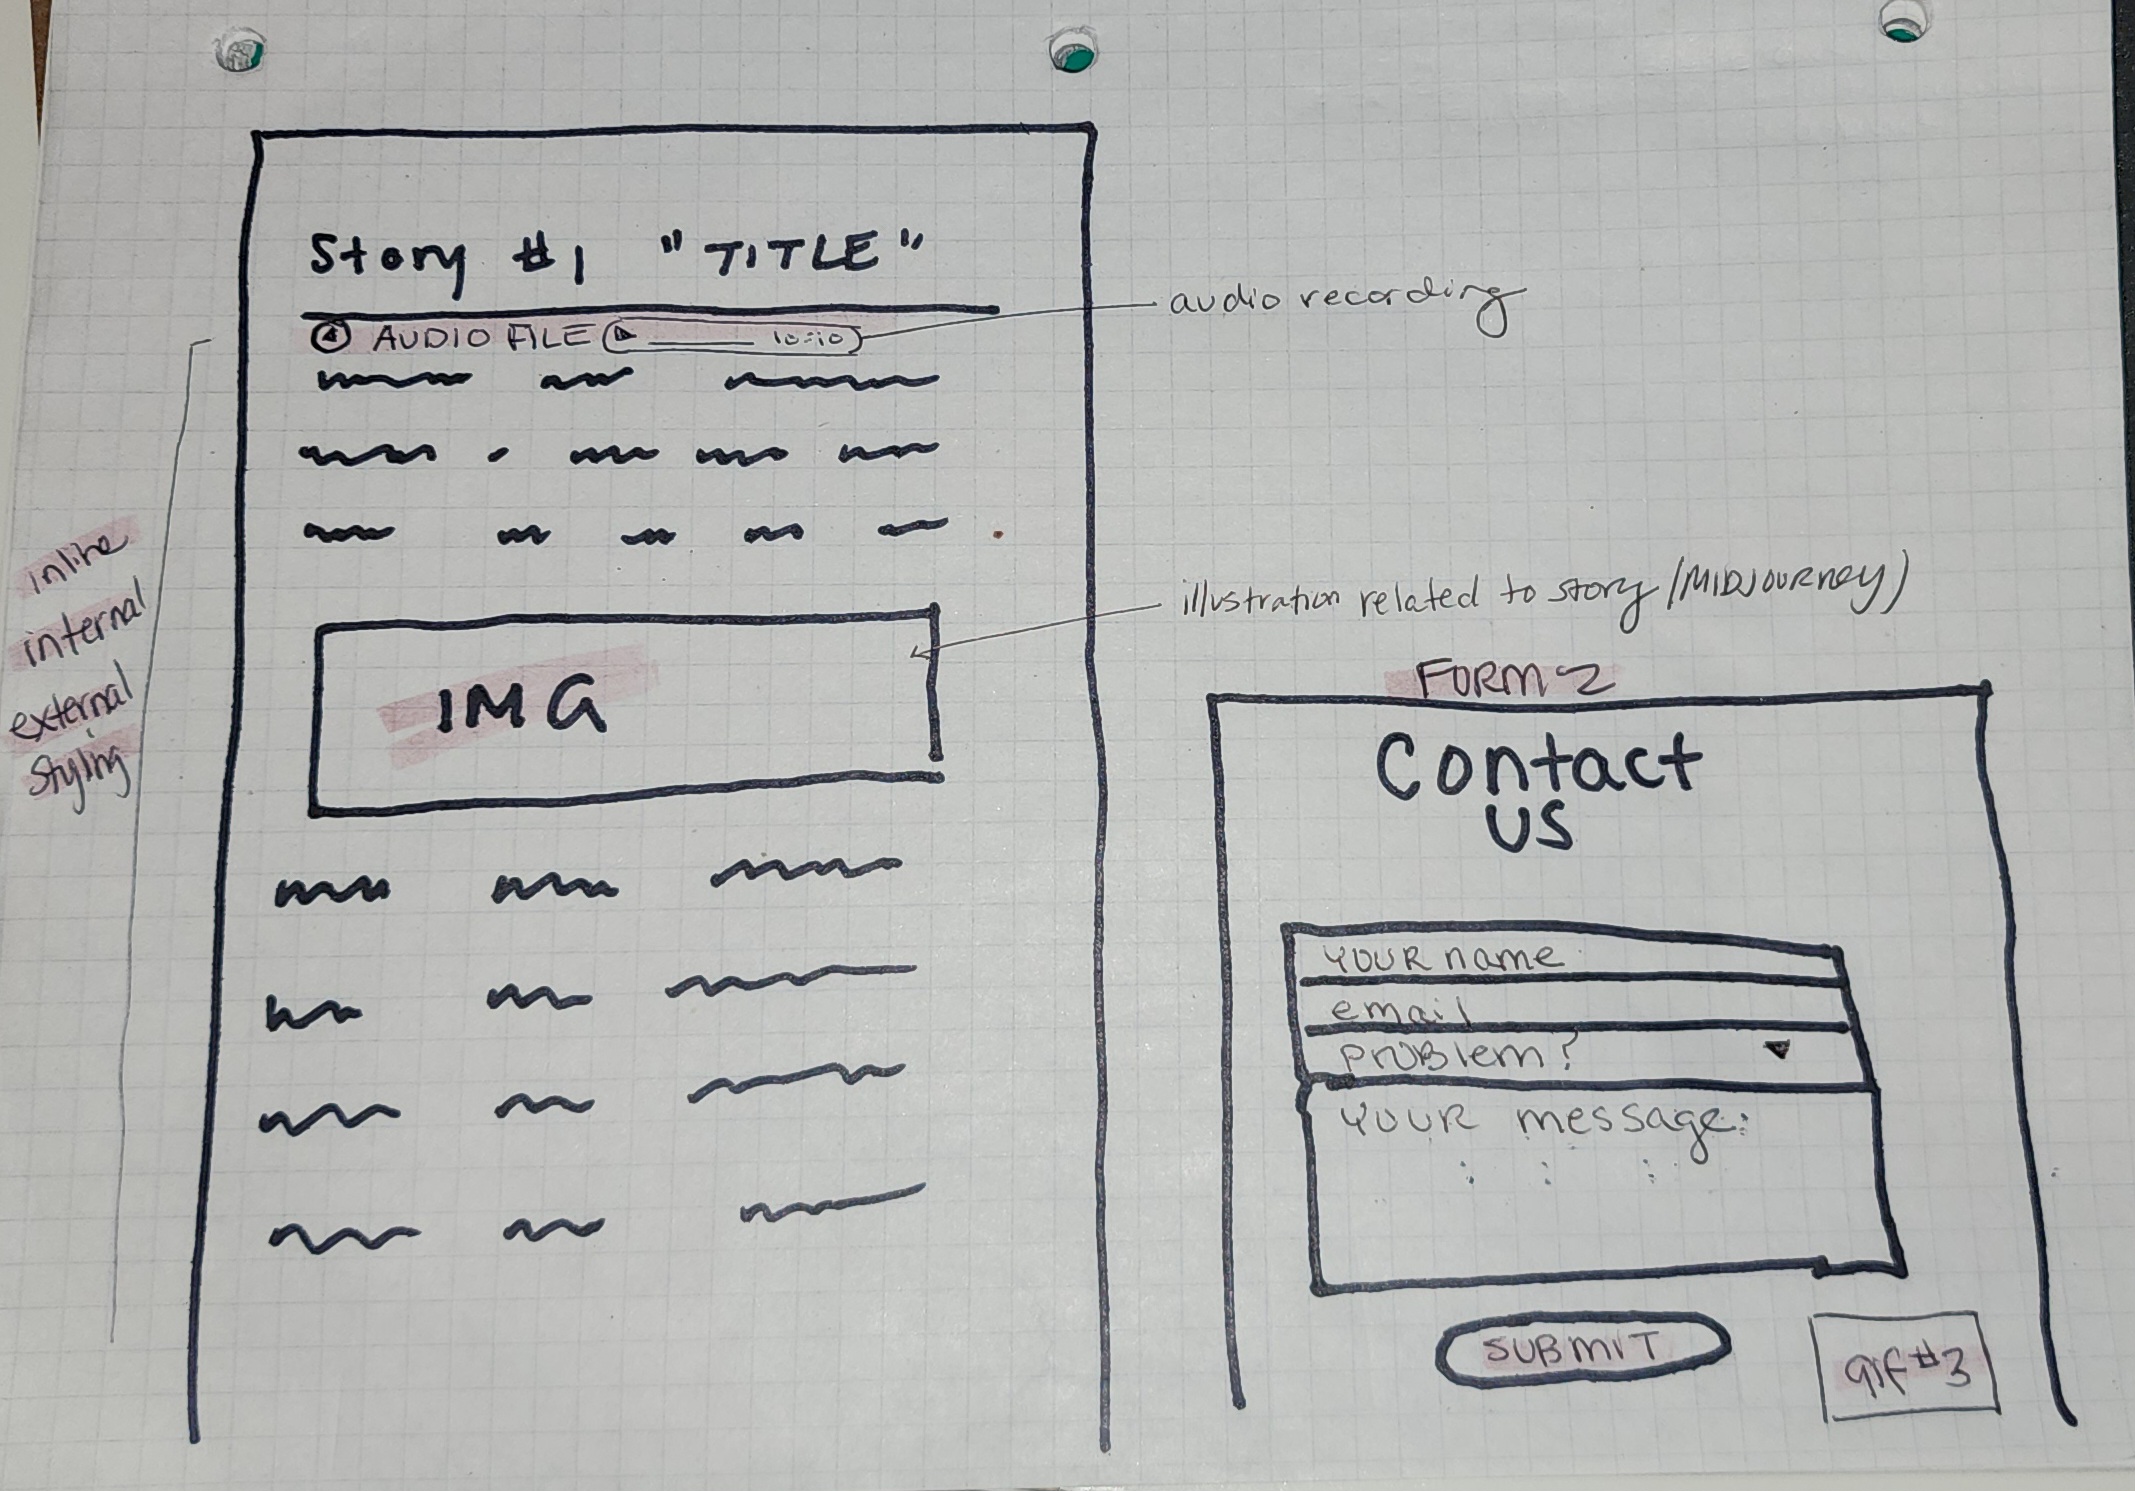 Story #1 "TITLE"
AUDIO FILE 10:10
audio recording
inline
internal
external
styling
illustration related to story /MIDJOURNEY)
IMG
FORM 2
Contact
US
YOUR name
email
PROBlem?
YOUR message:
SUBMIT
gif #3